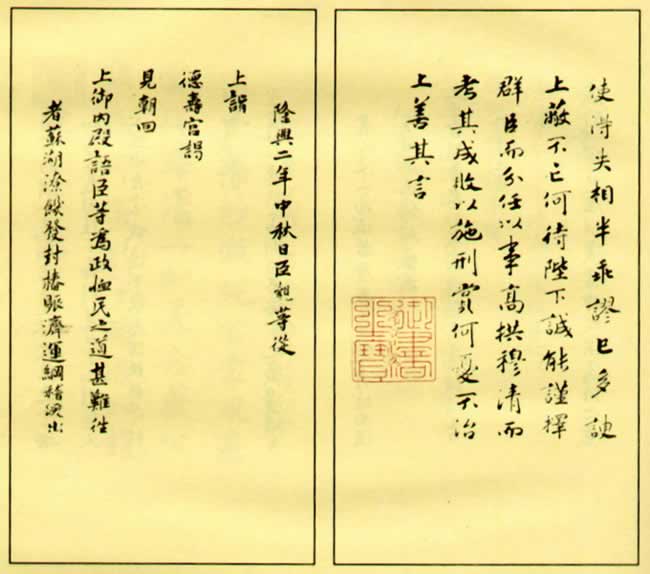 使得失相半乖謬已多諛
上蔽不亡何待陛下誠能謹擇
群臣而分任以事高拱穆清而
考其成敗以施刑賞何憂不治
上善其言
御書之寶
隆興二年中秋日臣等從
上詣
德壽宮謁
見朝回
上御內殿語臣等爲政恤民之道甚難往
者蘇湖潦饑發封樁賑濟運綱稽出